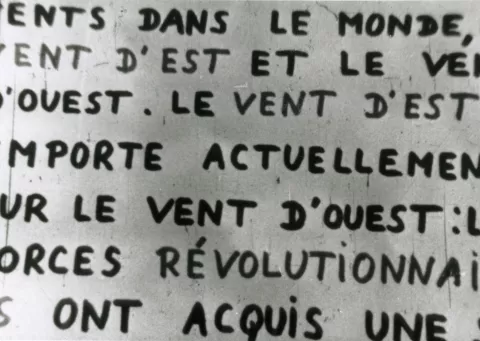 ENTS DANS LE MONDE,
VENT D'EST ET LE VE
D'OUEST. LE VENT D'EST
MPORTE ACTUELLEMEN
UR LE VENT D'OUEST:L
ORCES RÉVOLUTIONNAi
S ONT ACQUiS UNE S